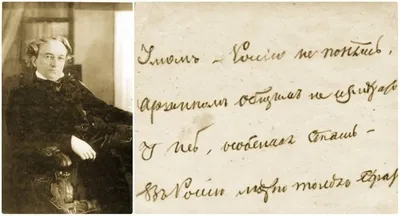 Умомъ – Россію не понять,
Аршиномъ общимъ не измѣрить
У ней особенная стать –
Въ Россію можно только вѣрить